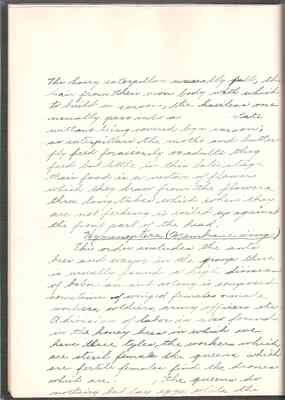 The hairy caterpillar usually pull, the
hair from their own body with which
to build a cocoon, the hairless one
usually pass into a state
without being covered by a cocoon;
as caterpillars the moth and butter
fly feed for as adults they
feed but little, in this late stage
their food is a nectar of flowers
which they draw from the flowers
three long tubes which when they
are not feeding is coiled up against
the front part of the head.
Hymenoptera (Membrane wing)
This order includes the ants
bees and wasps in the group there
is usually found a high division
of labor an ant colony is composed
sometimes of winged females males,
workers, soldiers, army officers etc
A division of labor is also found
in the honey bees in which we
have three types, the workers which
are steril female the queens which
are fertile females find the drones
which are, The queens do
nothing but lay eggs while the